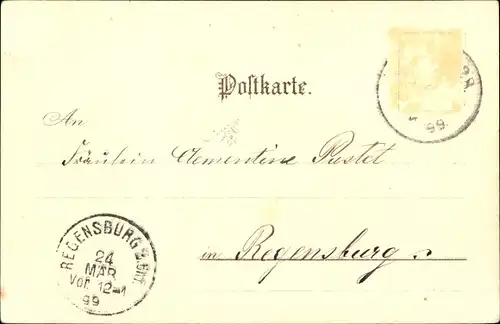 Postkarte.
99
An
Fräulein Clementine Pustet
in Regensburg.
REGENSBURG
24
MAR
Vor. 12-1
99